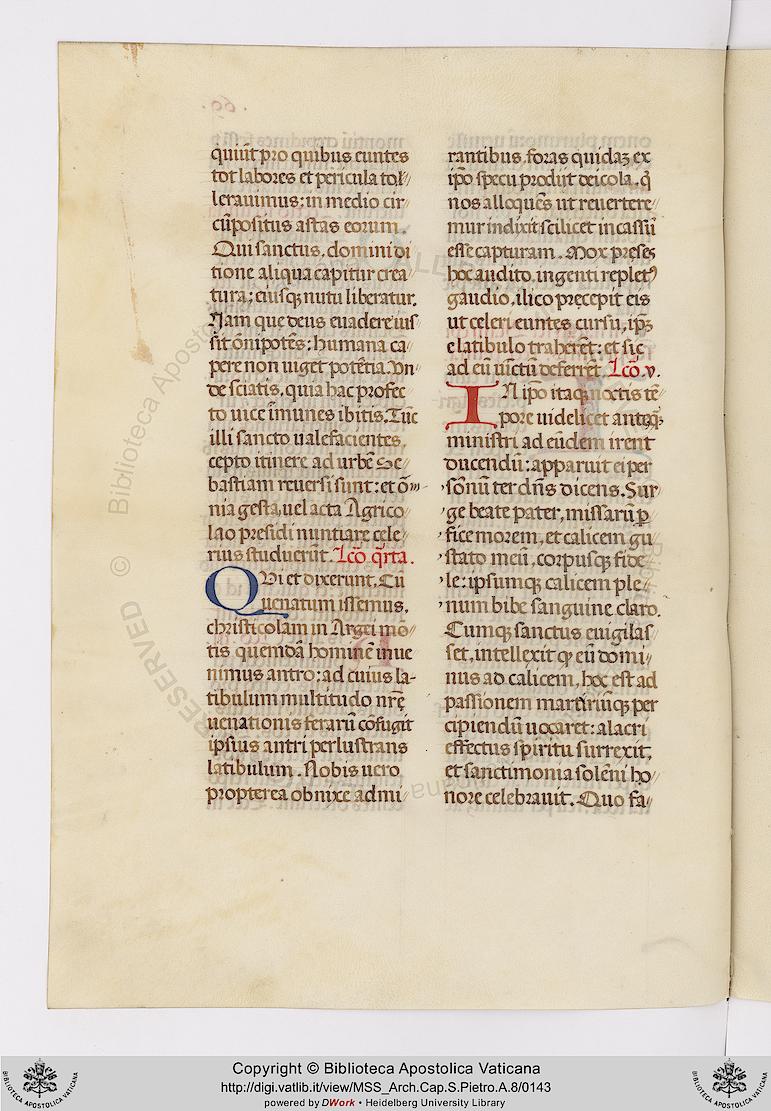 quiūt pro quibus euntes
tot labores et pericula tol//
lerauimus: in medio cir//
cūpositus astas eorum.
Qui sanctus, domini di
tione aliqua capitur crea
tura; eiusqꝫ nutu liberatur.
Nam que deus euadere ius//
sit ōnipotēs: humana ca//
pere non uiget potētia. Vn//
de sciatis, quia hac profec
to uice īmunes ibitis. Tūc
illi sancto ualefacientes,
cepto itinere ad urbē Se//
bastiam reuersi sunt: et ōm
nia gesta, uel acta Agrico//
lao presidi nuntiare cele//
rius studuerūt. Lcō q̄rta.
QVi et dixerunt. Cū
uenatum issemus,
christicolam in Argei mō//
tis quemdā hominē inue
nimus antro: ad cuius la-
tibulum multitudo nr̄ę
uenationis ferarū cōfugit
ipsius antri perlustrans
latibulum. Nobis uero
propterea obnixe admi//
rantibus, foras quidaꝫ ex
ip̄o specu prodijt deicola. q̄
nos alloquēs ut reuertere//
mur indixit scilicet in cassū
esse capturam. Mox pręses
hoc audito, ingenti repletꝰ
gaudio, ilico pręcepit eis
ut celeri euntes cursu, ip̄ꝫ
e latibulo traherēt: et sic
ad eū uīctū deferrēt. Lcō. v.
IN ip̄o itaqꝫ noctis tē//
pore uidelicet anteqꝫ
ministri ad eūdem irent
ducendū: apparuit ei per
sōnū ter dn̄s dicens. Sur//
ge beate pater, missarū ꝑ
fice morem, et calicem gu
stato meū, corpusqꝫ fide//
le: ipsumqꝫ calicem ple//
num bibe sanguine claro.
Cumqꝫ sanctus euigilas//
set, intellexit ꝙ eū domi//
nus ad calicem, hoc est ad
passionem martiriūqꝫ per
cipiendū uocaret: alacri
effectus spiritu surrexit,
et sanctimonia solēni ho//
nore celebrauit. Quo fa//
Copyright © Biblioteca Apostolica Vaticana
http://digi.vatlib.it/view/MSS_Arch.Cap.S.Pietro.A.8/0143
powered by DWork • Heidelberg University Library